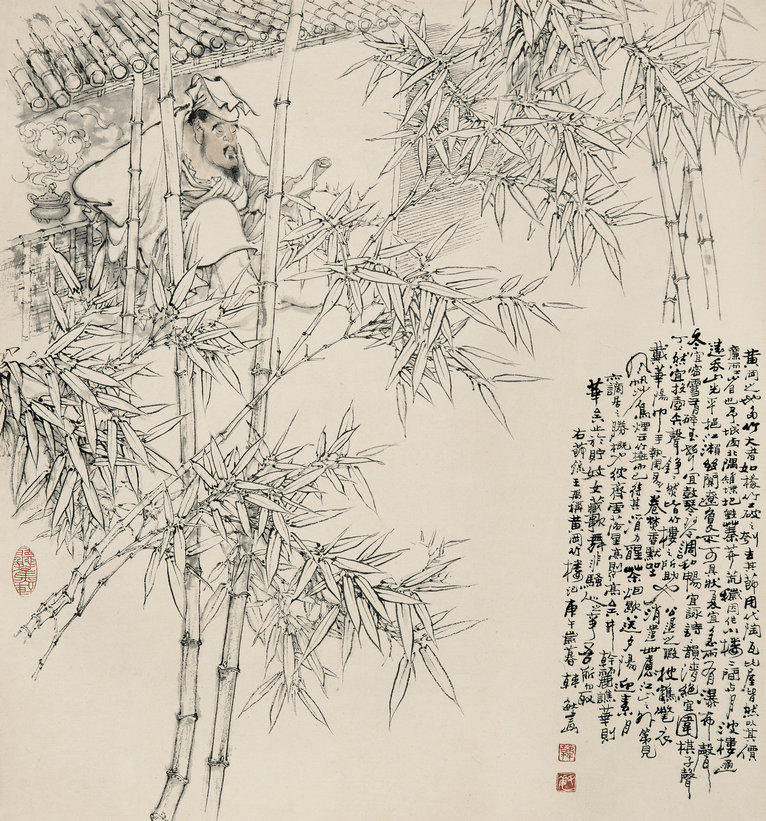 黃岡之地多竹大者如椽竹工破之刳去其節用代陶瓦比屋皆然以其價
廉而工省也予城西北隅雉堞圮毀蓁莽荒穢因作小樓二間与月波樓通
遠吞山光平挹江瀨幽闃遼夐不可具狀夏宜急雨有瀑布聲
冬宜密雪有碎玉聲宜鼓琴琴調和暢宜詠詩詩韻清絕宜圍棋子聲
丁丁然宜投壺矢聲錚錚然皆竹樓之所助也公退之暇披鶴氅衣
戴華陽巾手執周易一卷焚香默坐消遣世慮江山之外第見
風帆沙鳥煙雲竹樹而已待其酒力醒茶烟歇送夕陽迎素月
亦謫居之勝概也彼齊雲落星高則高矣井幹麗譙華則
華矣止於貯妓女藏歌舞非騷人之事吾所不取
右節錄王禹偁黃岡竹樓記庚午歲暮韓敏畫
韓
敏